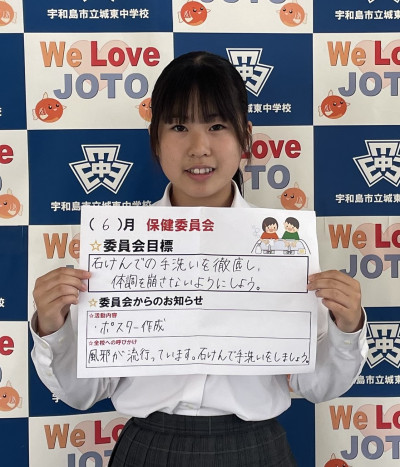 宇和島市立城東中学校
宇和島市立城東中学校
We Love
JOTO
We Love
JOTO
We Love
JOTO
宇和島市立城東中学校
宇和島市立城東中学校
(6)月 保健委員会
☆委員会目標
石けんでの手洗いを徹底し、
体調を崩さないようにしよう。
☆委員会からのお知らせ
☆活動内容
・ポスター作成
☆全校への呼びかけ
風邪が流行っています。石けんで手洗いをしましょう。
We Love
JOTO
We Love
JOTO